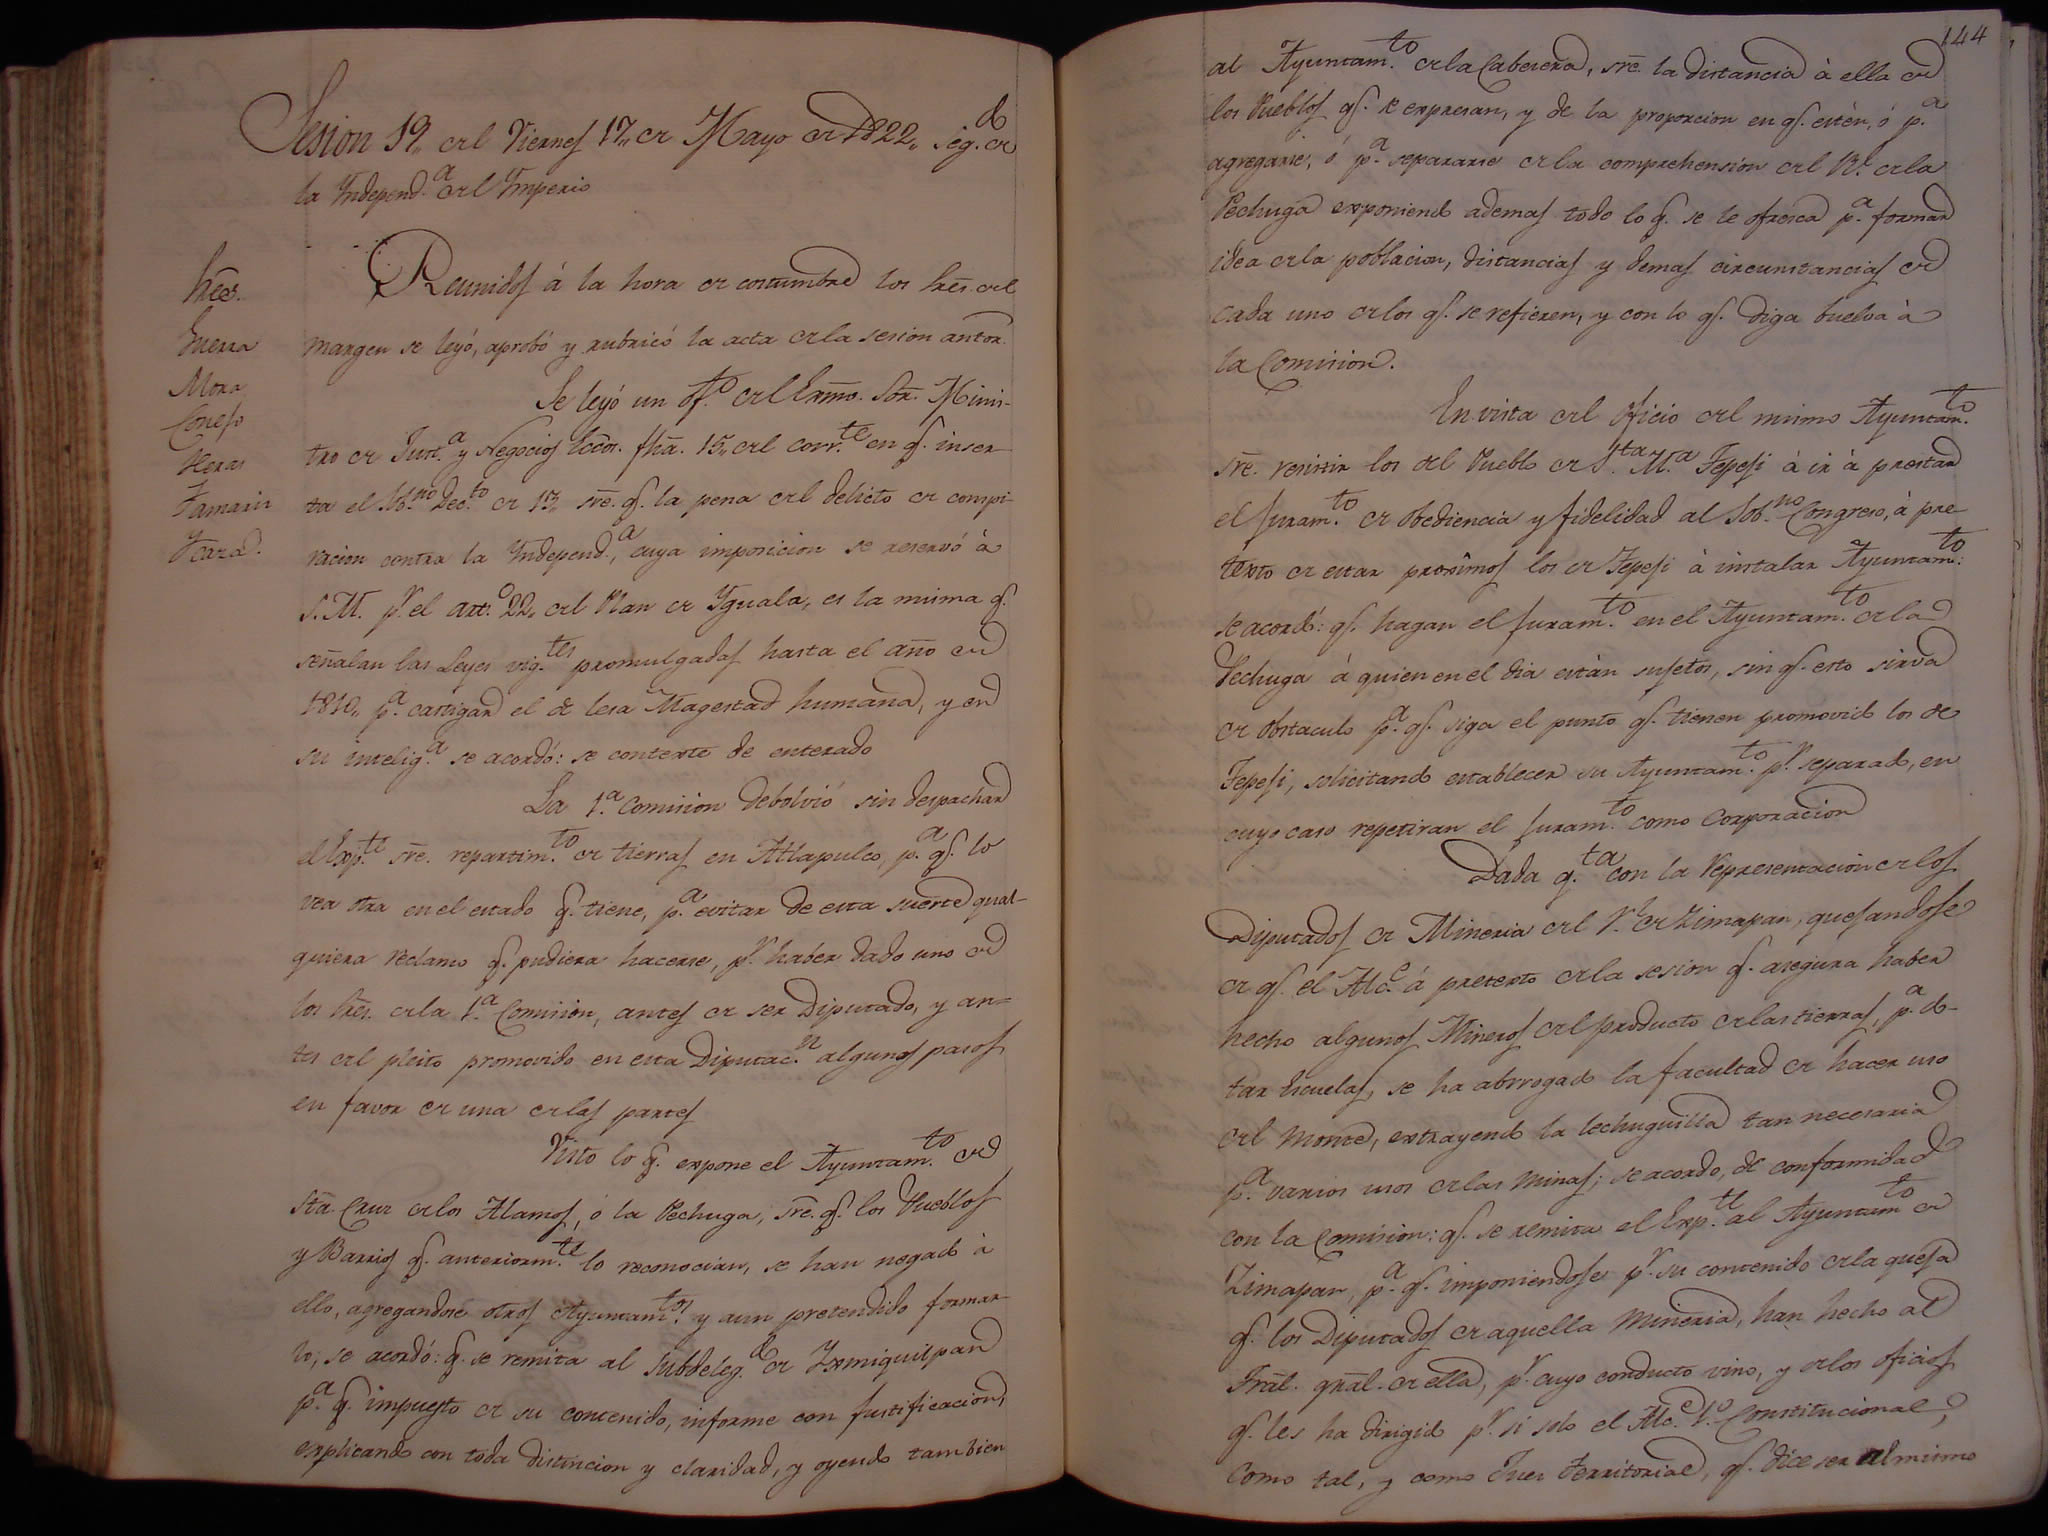 Sesion 19,, del Viernes 17,, de Mayo de 1822,, seg.do de
la Independ.a del Imperio
Sres.
Guerra
Mora
Conejo
Heras
Tamariz
Ycaza.
Reunidos á la hora de costumbre los Sres. del
margen se leyó, aprobó y rubricó la acta de la sesion antor.
Se leyó un of.o del Exmo. Sor. Minis-
tro de Just.a y Negocios Eccos. fha. 15,, del corr.te en q.e inser-
ta el Sob.no Dec.to de 13,, sre. q.e la pena del delicto de conspi-
racion contra la Independ.a, cuya imposicion se reservó à
S. M. p.r el art.o 22,, del Plan de Yguala, es la misma q.e
señalan las Leyes vig.tes promulgadas hasta el año de
1810,, p.a castigar el de lesa Magestad humana, y en
su intelig.a se acordó: se conteste de enterado
La 1.a Comision debolvió sin despachar
el Exp.te sre. repartim.to de tierras en Atlapulco, p.a q.e lo
vea otra en el estado q.e tiene, p.a evitar de esta suerte qual-
quiera reclamo q.e pudiera hacerse, p.r haber dado uno de
los Sres. de la 1.a Comision, antes de ser Diputado, y an-
tes del pleito promovido en esta Diputac.n algunos pasos
en favor de una de las partes
Visto lo q.e expone el Ayuntam.to de
Sta. Cruz de los Alamos, ó la Pechuga, sre. q.e los Pueblos
y Barrios q.e anteriorm.te lo reconocian, se han negado à
ello, agregandose otros Ayuntam.tos y aun pretendido formar-
lo; se acordó: q.e se remita al Subdeleg.do de Yxmiquilpan
p.a q.e impuesto de su contenido, informe con justificacion,
explicando con toda distincion y claridad, y oyendo tambien
144
al Ayuntam.to de la Cabesera, sre. la distancia à ella de
los Pueblos q.e se expresan, y de la proporcion en q.e estèn, ó p.a
agregarse, ó p.a separarse de la comprehension del R.l de la
Pechuga exponiendo ademas todo lo q.e se le ofresca p.a formar
idea de la poblacion, distancias y demas circunstancias de
cada uno de los q.e se refieren, y con lo q.e diga buelva à
la Comision.
En vista del oficio del mismo Ayuntam.to
sre. resistir los del Pueblo de S.ta M.a Tepeji à ir à prestar
el juram.to de obediencia y fidelidad al Sob.no Congreso, à pre-
texto de estar proximos los de Tepeji à instalar Ayuntam.to:
se acordó: q.e hagan el juram.to en el Ayuntam.to de la
Pechuga á quien en el dia estàn sujetos, sin q.e esto sirva
de obstaculo p.a q.e siga el punto q.e tienen promovido los de
Tepeji, solicitando establecer su Ayuntam.to p.r separado, en
cuyo caso repetiran el juram.to como Corporacion
Dada q.ta con la Representacion de los
Diputados de Mineria del R.l de Zimapan, quejandose
de q.e el Alc.e á pretexto de la sesion q.e asegura haber
hecho algunos Mineros del producto de las tierras, p.a do-
tar Escuelas, se ha abrrogado la facultad de hacer uso
del Monte, extrayendo la lechuguilla tan necesaria
p.a varios usos de las Minas; se acordo, de conformidad
con la Comision: q.e se remita el Exp.te al Ayuntam.to de
Zimapan, p.a q.e imponiendose p.r su contenido de la queja
q.e los Diputados de aquella Mineria, han hecho al
Tral. gral. de ella, p.r cuyo conducto vino, y de los oficios
q.e les ha dirigido p.r si solo el Alc.e 1.o Constitucional,
como tal, y como Juez territorial, q.e dice ser al mismo